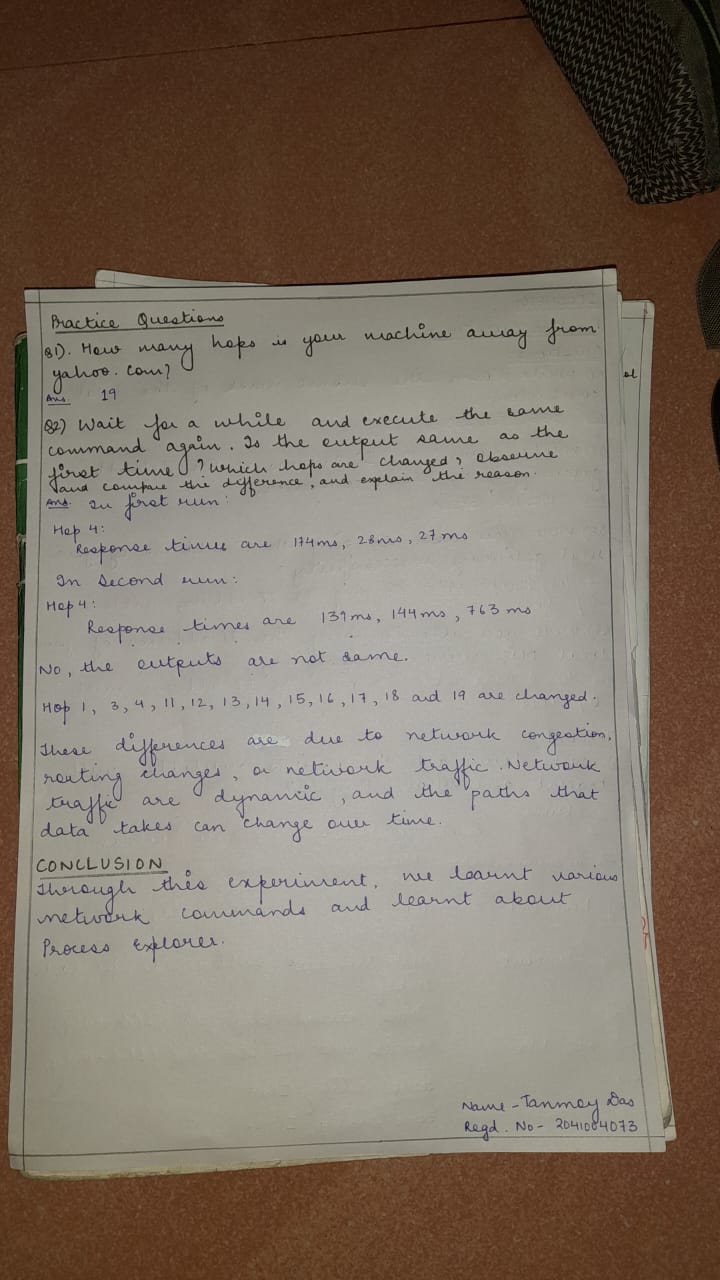 Practice Questions
Q1). How many hops is your machine away from
yahoo. com?
Ans. 19
Q2) Wait for a while and execute the same
command again. Is the output same as the
first time? Which hops are changed, observe
and compare the difference, and explain the reason.
Ans. In first run:
Hop 4:
Response times are 174ms, 28ms, 27 ms
In second run:
Hop 4:
Response times are 139ms, 144ms, 763 ms
No, the outputs are not same.
Hop 1, 3, 4, 11, 12, 13, 14, 15, 16, 17, 18 and 19 are changed.
These differences are due to network congestion,
routing changes, or network traffic. Network
traffic are dynamic, and the paths that
data takes can change over time.
CONCLUSION
Through this experiment, we learnt various
network commands and learnt about
Process Explorer.
Name - Tanmoy Das
Regd. No - 2041004073